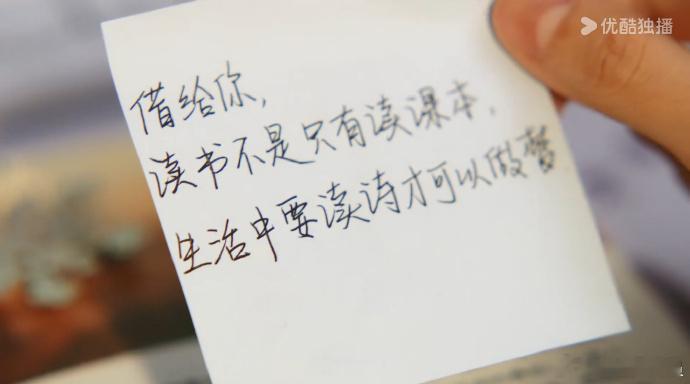 优酷独播
借给你,
读书不是只有读课本,
生活中要读诗才可以做梦